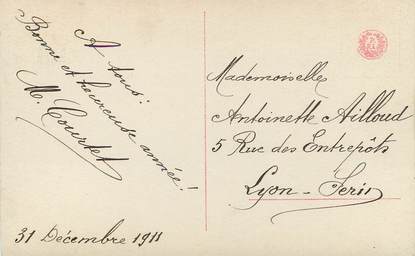 A tous:
Bonne et heureuse année!
M. Courtet
31 Décembre 1911
Mademoiselles
Antoinette Ailloud
5 Rue des Entrepôts
Lyon-Serin